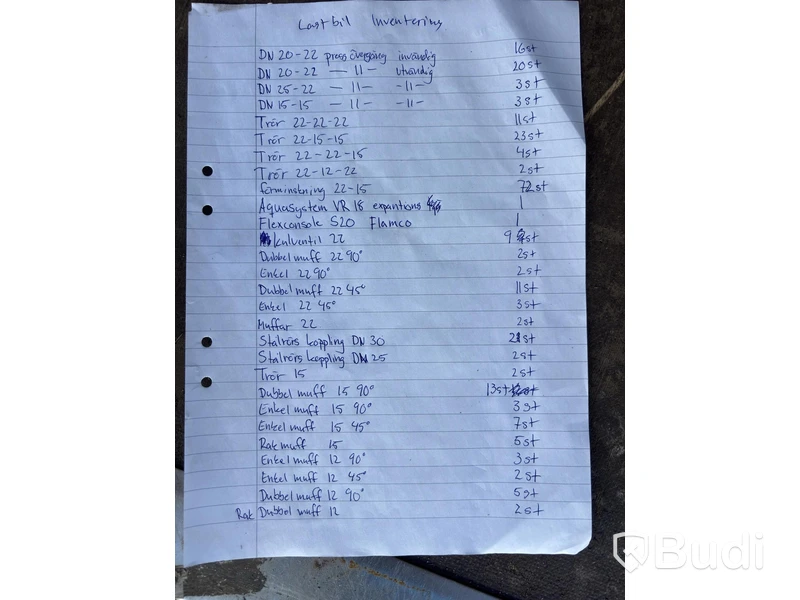 Lastbil Inventering
DN 20-22 pressövergång invändig 16st
DN 20-22 -11- utvändig 20st
DN 25-22 -11- -11- 3st
DN 15-15 -11- -11- 3st
Trör 22-22-22 11st
Trör 22-15-15 23st
Trör 22-22-15 4st
Trör 22-12-22 2st
förminskning 22-15 72st
Aquasystem VR 18 expantions 1
Flexconsole S20 Flamco 1
kulventil 22 9 st
Dubbel muff 22 90° 2st
Enkel 22 90° 2st
Dubbel muff 22 45° 11st
Enkel 22 45° 3st
Muffar 22 2st
Stålrörs koppling DN 30 21st
Stålrörs koppling DN 25 2st
Trör 15 2st
Dubbel muff 15 90° 13st
Enkel muff 15 90° 3st
Enkel muff 15 45° 7st
Rak muff 15 5st
Enkel muff 12 90° 3st
Enkel muff 12 45° 2st
Dubbel muff 12 90° 5st
Rak Dubbel muff 12 2st
Budi